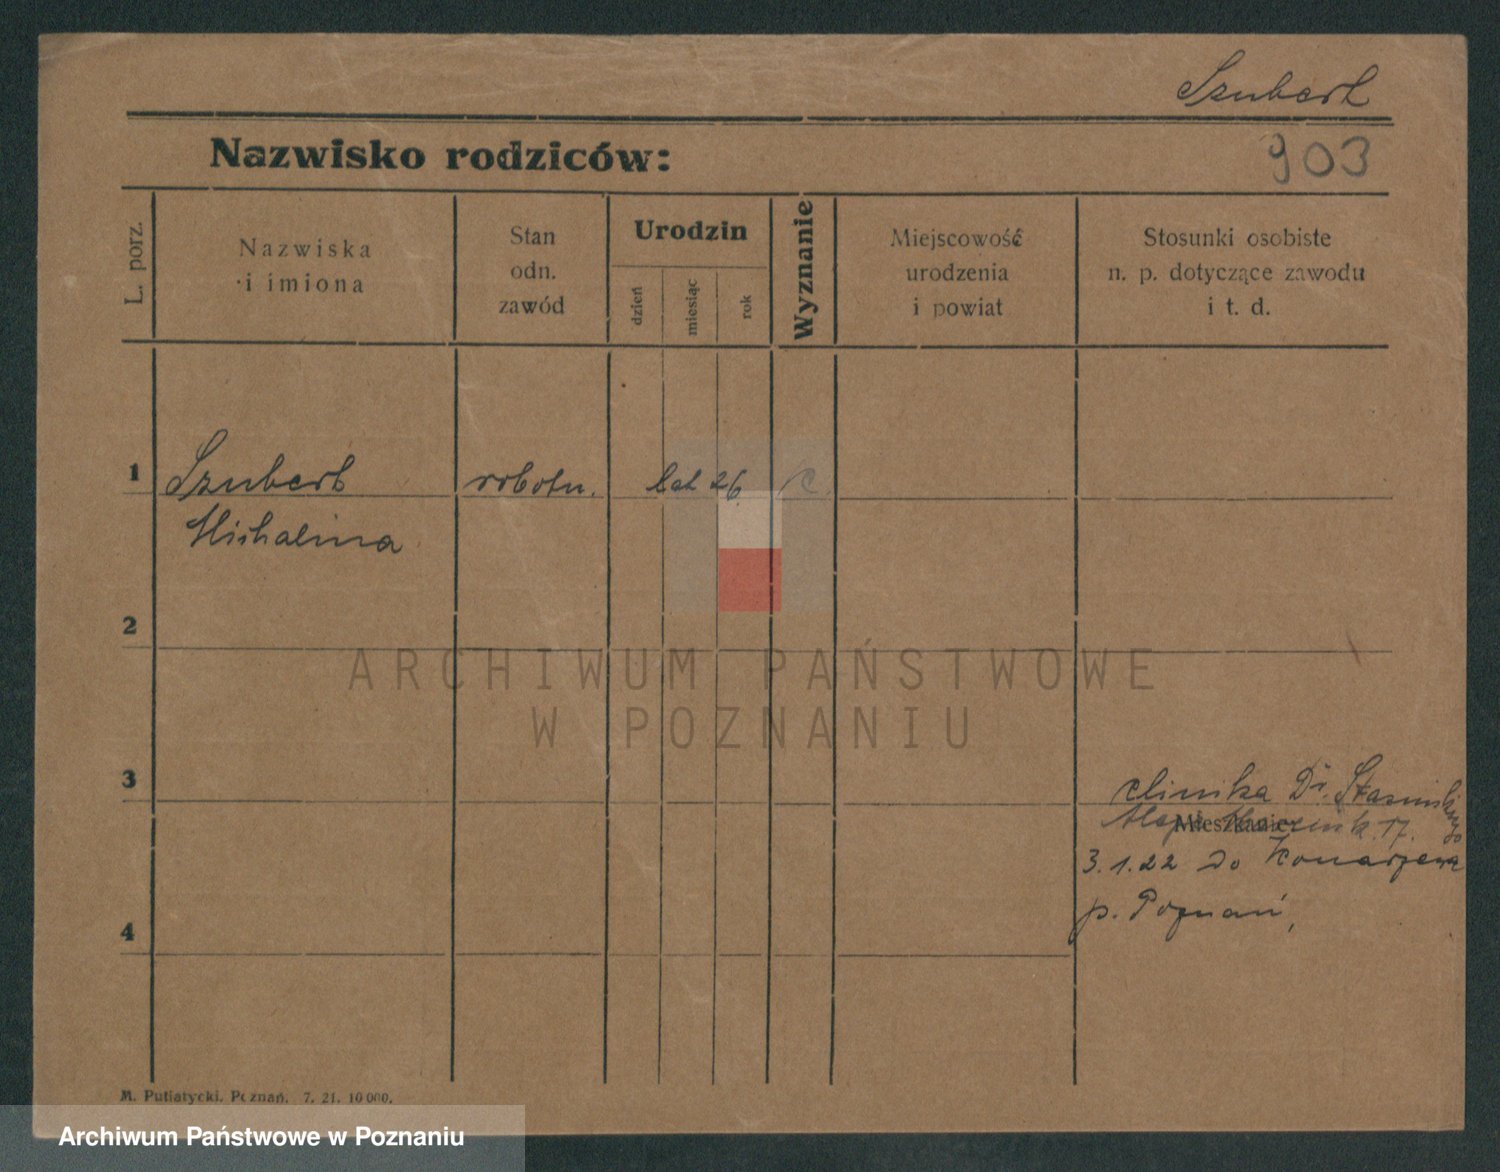 Szubert
Nazwisko rodziców:
903
L. porz.
Nazwiska
i imiona
Stan
odn.
zawód
Urodzin
dzień
miesiąc
rok
Wyznanie
Miejscowość
urodzenia
i powiat
Stosunki osobiste
n. p. dotyczące zawodu
i t. d.
1
Szubert
robotn.
lat 26.
Michalina
2
ARCHIWUM PAŃSTWOWE
W POZNANIU
3
clinika Dr.
Mieszkanie
17.
3.1.22 do Konarzewa
p. Poznań,
4
M. Putiatycki. Poznań. 7. 21. 10 000.
Archiwum Państwowe w Poznaniu